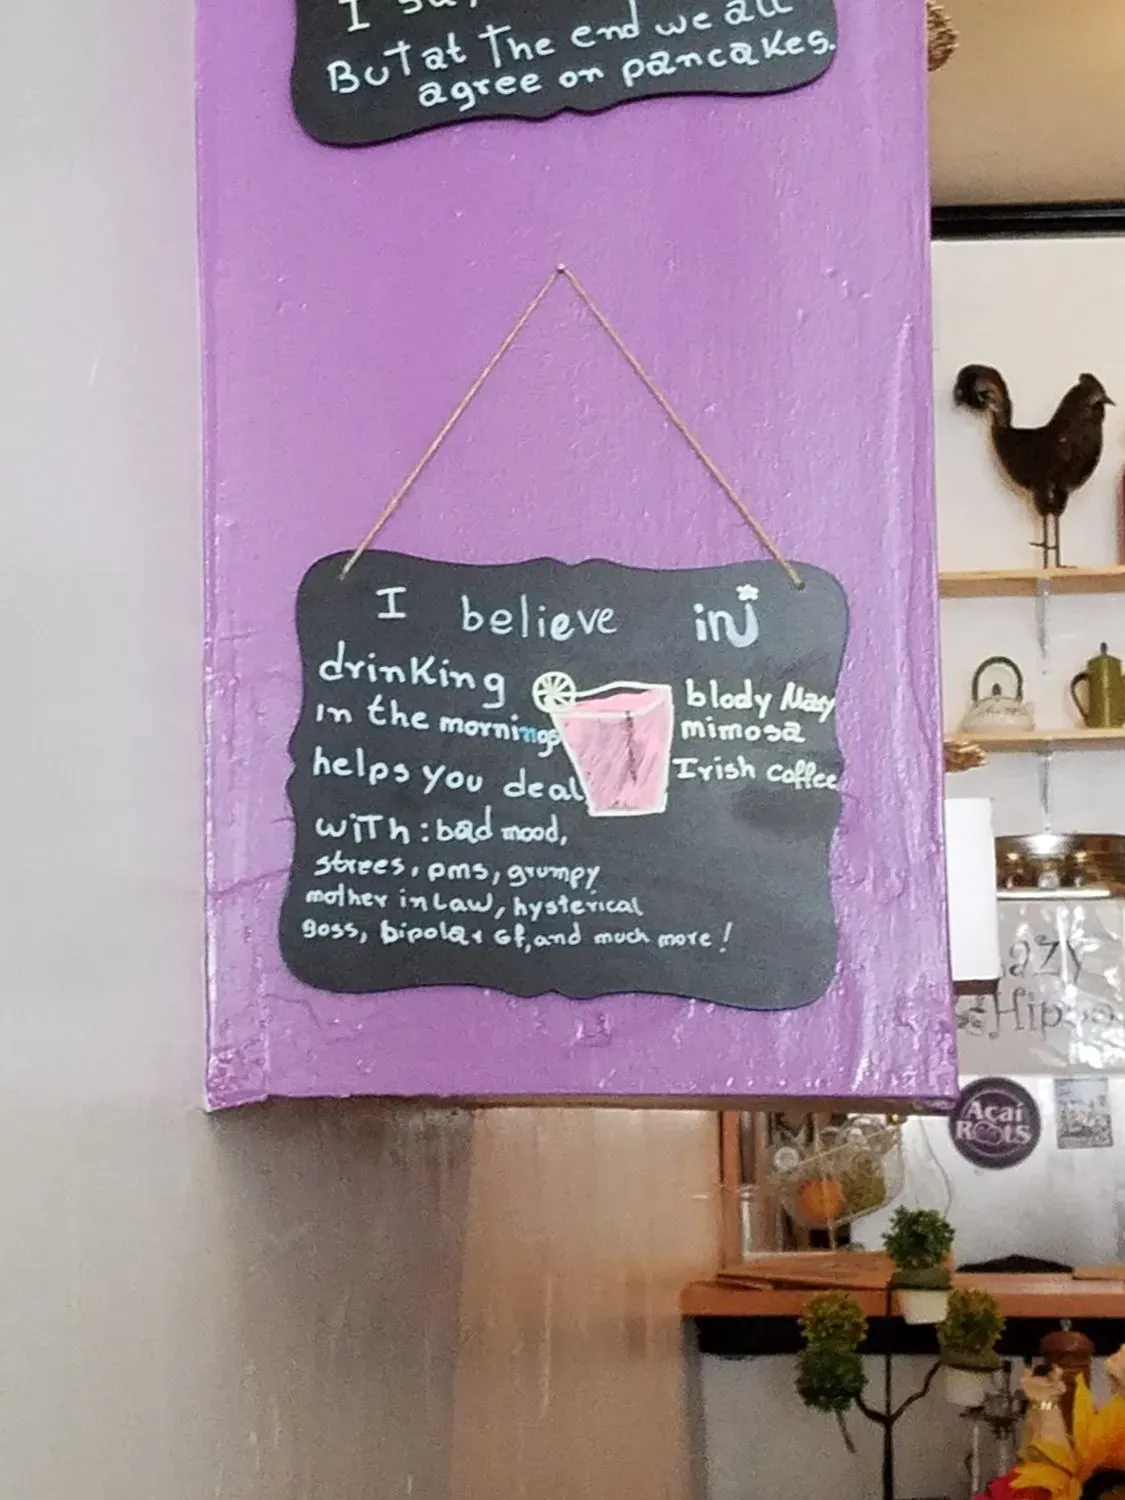 But at The end we all
agree on pancakes.
I believe in
drinking
in the mornings
helps you deal
with: bad mood,
strees, pms, grumpy
mother in law, hysterical
Boss, bipolar GF, and much more!
blody Mary
mimosa
Irish coffee
Lazy
Hippo
Açaí
ROOTS